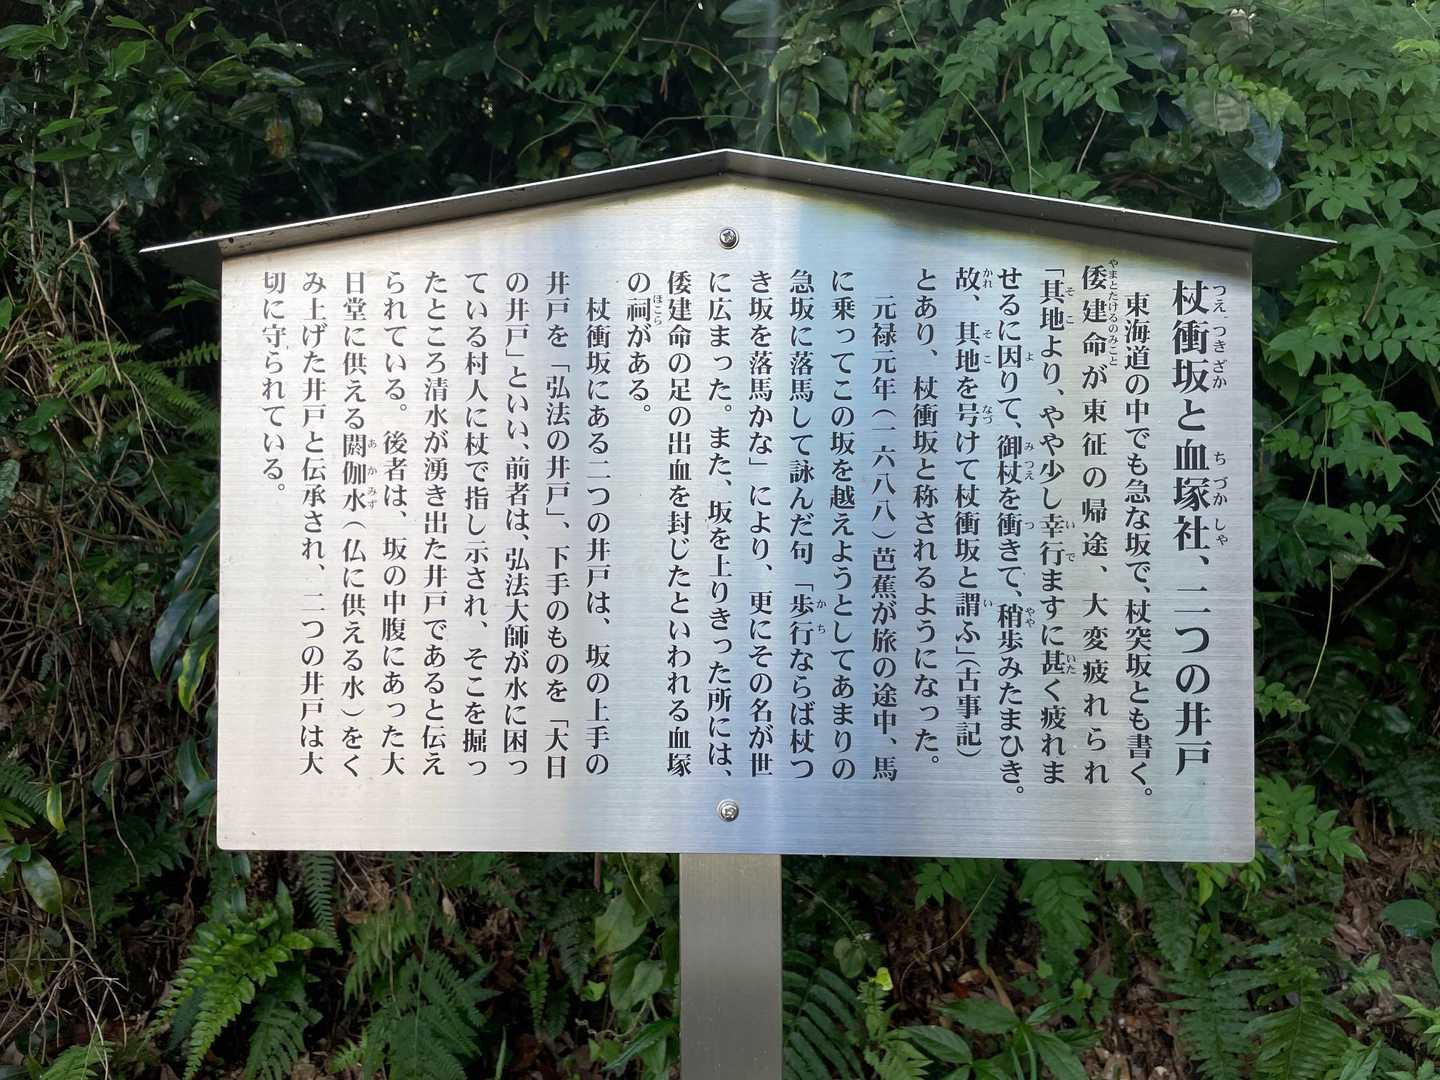 杖衝坂と血塚社、二つの井戸
東海道の中でも急な坂で、杖突坂とも書く。
倭建命が東征の帰途、大変疲れられ
「其地より、やや少し幸行ますに甚く疲れま
せるに因りて、御杖を衝きて、稍歩みたまひき。
故、其地を号けて杖衝坂と謂ふ」（古事記）
とあり、杖衝坂と称されるようになった。
元禄元年（一六八八）芭蕉が旅の途中、馬
に乗ってこの坂を越えようとしてあまりの
急坂に落馬して詠んだ句「歩行ならば杖つ
き坂を落馬かな」により、更にその名が世
に広まった。また、坂を上りきった所には、
倭建命の足の出血を封じたといわれる血塚
の祠がある。
杖衝坂にある二つの井戸は、坂の上手の
井戸を「弘法の井戸」、下手のものを「大日
の井戸」といい、前者は、弘法大師が水に困っ
ている村人に杖で指し示され、そこを掘っ
たところ清水が湧き出た井戸であると伝え
られている。後者は、坂の中腹にあった大
日堂に供える閼伽水（仏に供える水）をく
み上げた井戸と伝承され、二つの井戸は大
切に守られている。